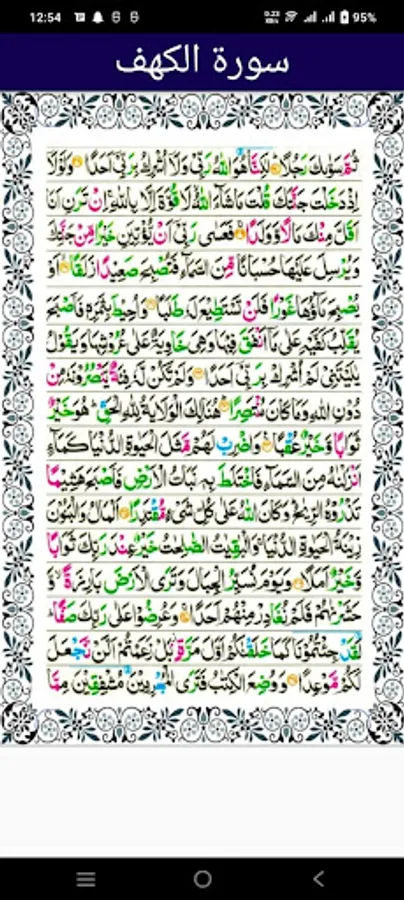 12:54
0.23 KB/s
95%
سورة الكهف
ثُمَّ سَوّٰىكَ رَجُلًا لٰكِنَّا۠ هُوَ اللّٰهُ رَبِّیْ وَلَاۤ اُشْرِكُ بِرَبِّیْۤ اَحَدًا وَلَوْلَاۤ
اِذْ دَخَلْتَ جَنَّتَكَ قُلْتَ مَا شَآءَ اللّٰهُ لَا قُوَّةَ اِلَّا بِاللّٰهِ اِنْ تَرَنِ اَنَا
اَقَلَّ مِنْكَ مَالًا وَّوَلَدًا فَعَسٰی رَبِّیْۤ اَنْ یُّؤْتِیَنِ خَیْرًا مِّنْ جَنَّتِكَ
وَیُرْسِلَ عَلَیْهَا حُسْبَانًا مِّنَ السَّمَآءِ فَتُصْبِحَ صَعِیْدًا زَلَقًا اَوْ
یُصْبِحَ مَآؤُهَا غَوْرًا فَلَنْ تَسْتَطِیْعَ لَهٗ طَلَبًا وَاُحِیْطَ بِثَمَرِهٖ فَاَصْبَحَ
یُقَلِّبُ كَفَّیْهِ عَلٰی مَاۤ اَنْفَقَ فِیْهَا وَهِیَ خَاوِیَةٌ عَلٰی عُرُوْشِهَا وَیَقُوْلُ
یٰلَیْتَنِیْ لَمْ اُشْرِكْ بِرَبِّیْۤ اَحَدًا وَلَمْ تَكُنْ لَّهٗ فِئَةٌ یَّنْصُرُوْنَهٗ مِنْ
دُوْنِ اللّٰهِ وَمَا كَانَ مُنْتَصِرًا هُنَالِكَ الْوَلَایَةُ لِلّٰهِ الْحَقِّ هُوَ خَیْرٌ
ثَوَابًا وَّخَیْرٌ عُقْبًا وَاضْرِبْ لَهُمْ مَّثَلَ الْحَیٰوةِ الدُّنْیَا كَمَآءٍ
اَنْزَلْنٰهُ مِنَ السَّمَآءِ فَاخْتَلَطَ بِهٖ نَبَاتُ الْاَرْضِ فَاَصْبَحَ هَشِیْمًا
تَذْرُوْهُ الرِّیٰحُ وَكَانَ اللّٰهُ عَلٰی كُلِّ شَیْءٍ مُّقْتَدِرًا اَلْمَالُ وَالْبَنُوْنَ
زِیْنَةُ الْحَیٰوةِ الدُّنْیَا وَالْبٰقِیٰتُ الصّٰلِحٰتُ خَیْرٌ عِنْدَ رَبِّكَ ثَوَابًا
وَّخَیْرٌ اَمَلًا وَیَوْمَ نُسَیِّرُ الْجِبَالَ وَتَرَی الْاَرْضَ بَارِزَةً وَّ
حَشَرْنٰهُمْ فَلَمْ نُغَادِرْ مِنْهُمْ اَحَدًا وَعُرِضُوْا عَلٰی رَبِّكَ صَفًّا
لَقَدْ جِئْتُمُوْنَا كَمَا خَلَقْنٰكُمْ اَوَّلَ مَرَّةٍ بَلْ زَعَمْتُمْ اَلَّنْ نَّجْعَلَ
لَكُمْ مَّوْعِدًا وَوُضِعَ الْكِتٰبُ فَتَرَی الْمُجْرِمِیْنَ مُشْفِقِیْنَ مِمَّا